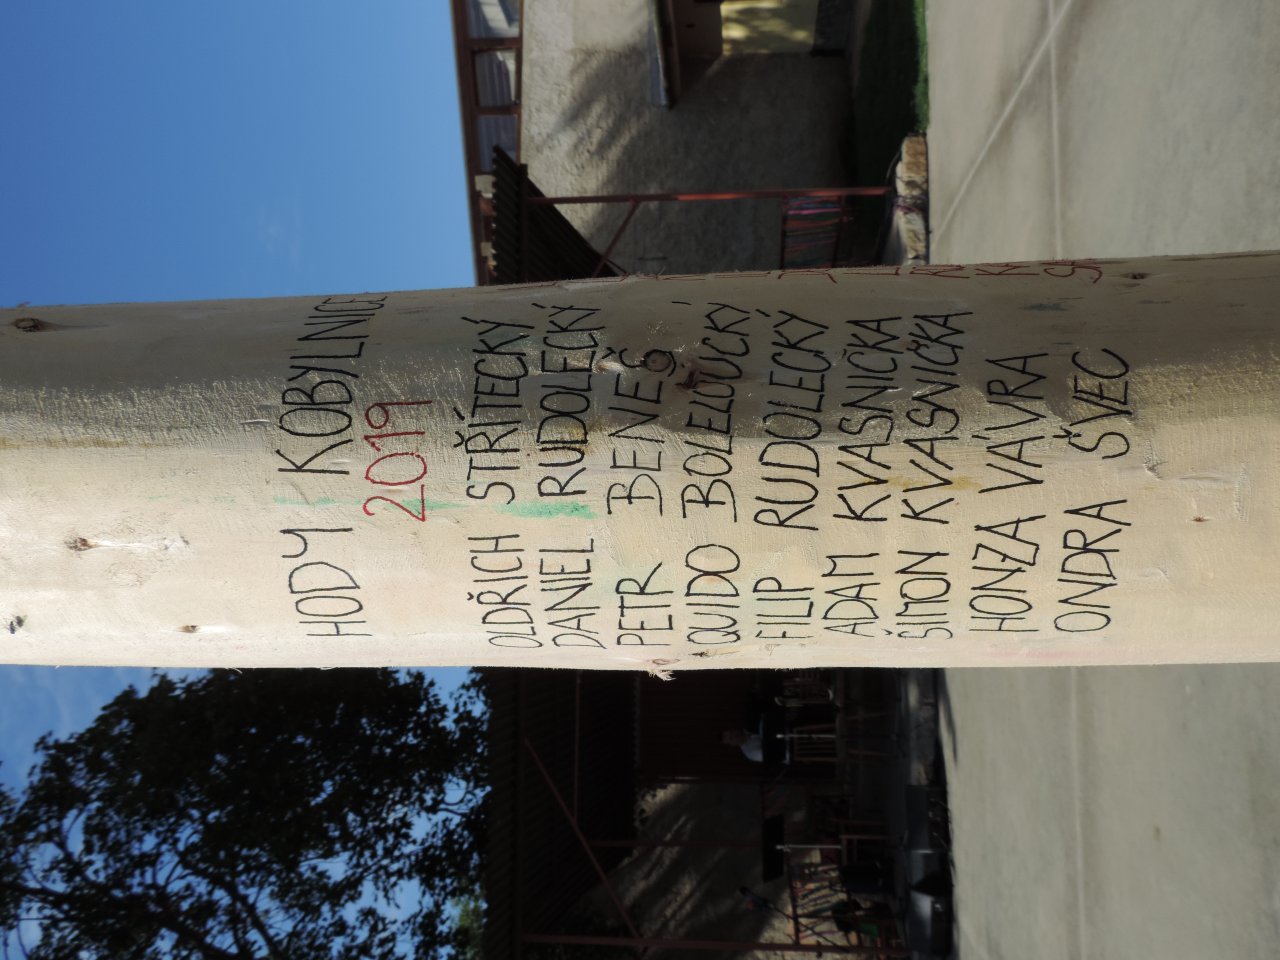 HODY KOBYLNICE
2019
OLDŘICH STŘÍTECKÝ
DANIEL RUDOLECKÝ
PETR BENEŠ
QUIDO BOLELOUCKÝ
FILIP RUDOLECKÝ
ADAM KVASNIČKA
ŠIMON KVASNIČKA
HONZA VÁVRA
ONDRA ŠVEC